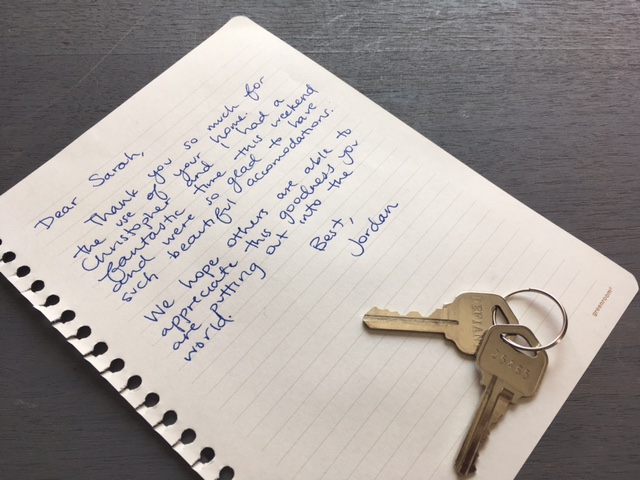 Dear Sarah,
Thank you so much for
the use of your home.
Christopher and I had a
fantastic time this weekend
and were so glad to have
such beautiful accomodations.
We hope others are able to
appreciate this goodness you
are putting out into the
world.
Best,
Jordan
greenroom